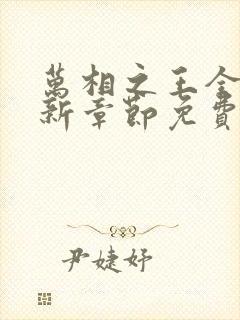 萬相之王全
新章節免費
尹婕妤